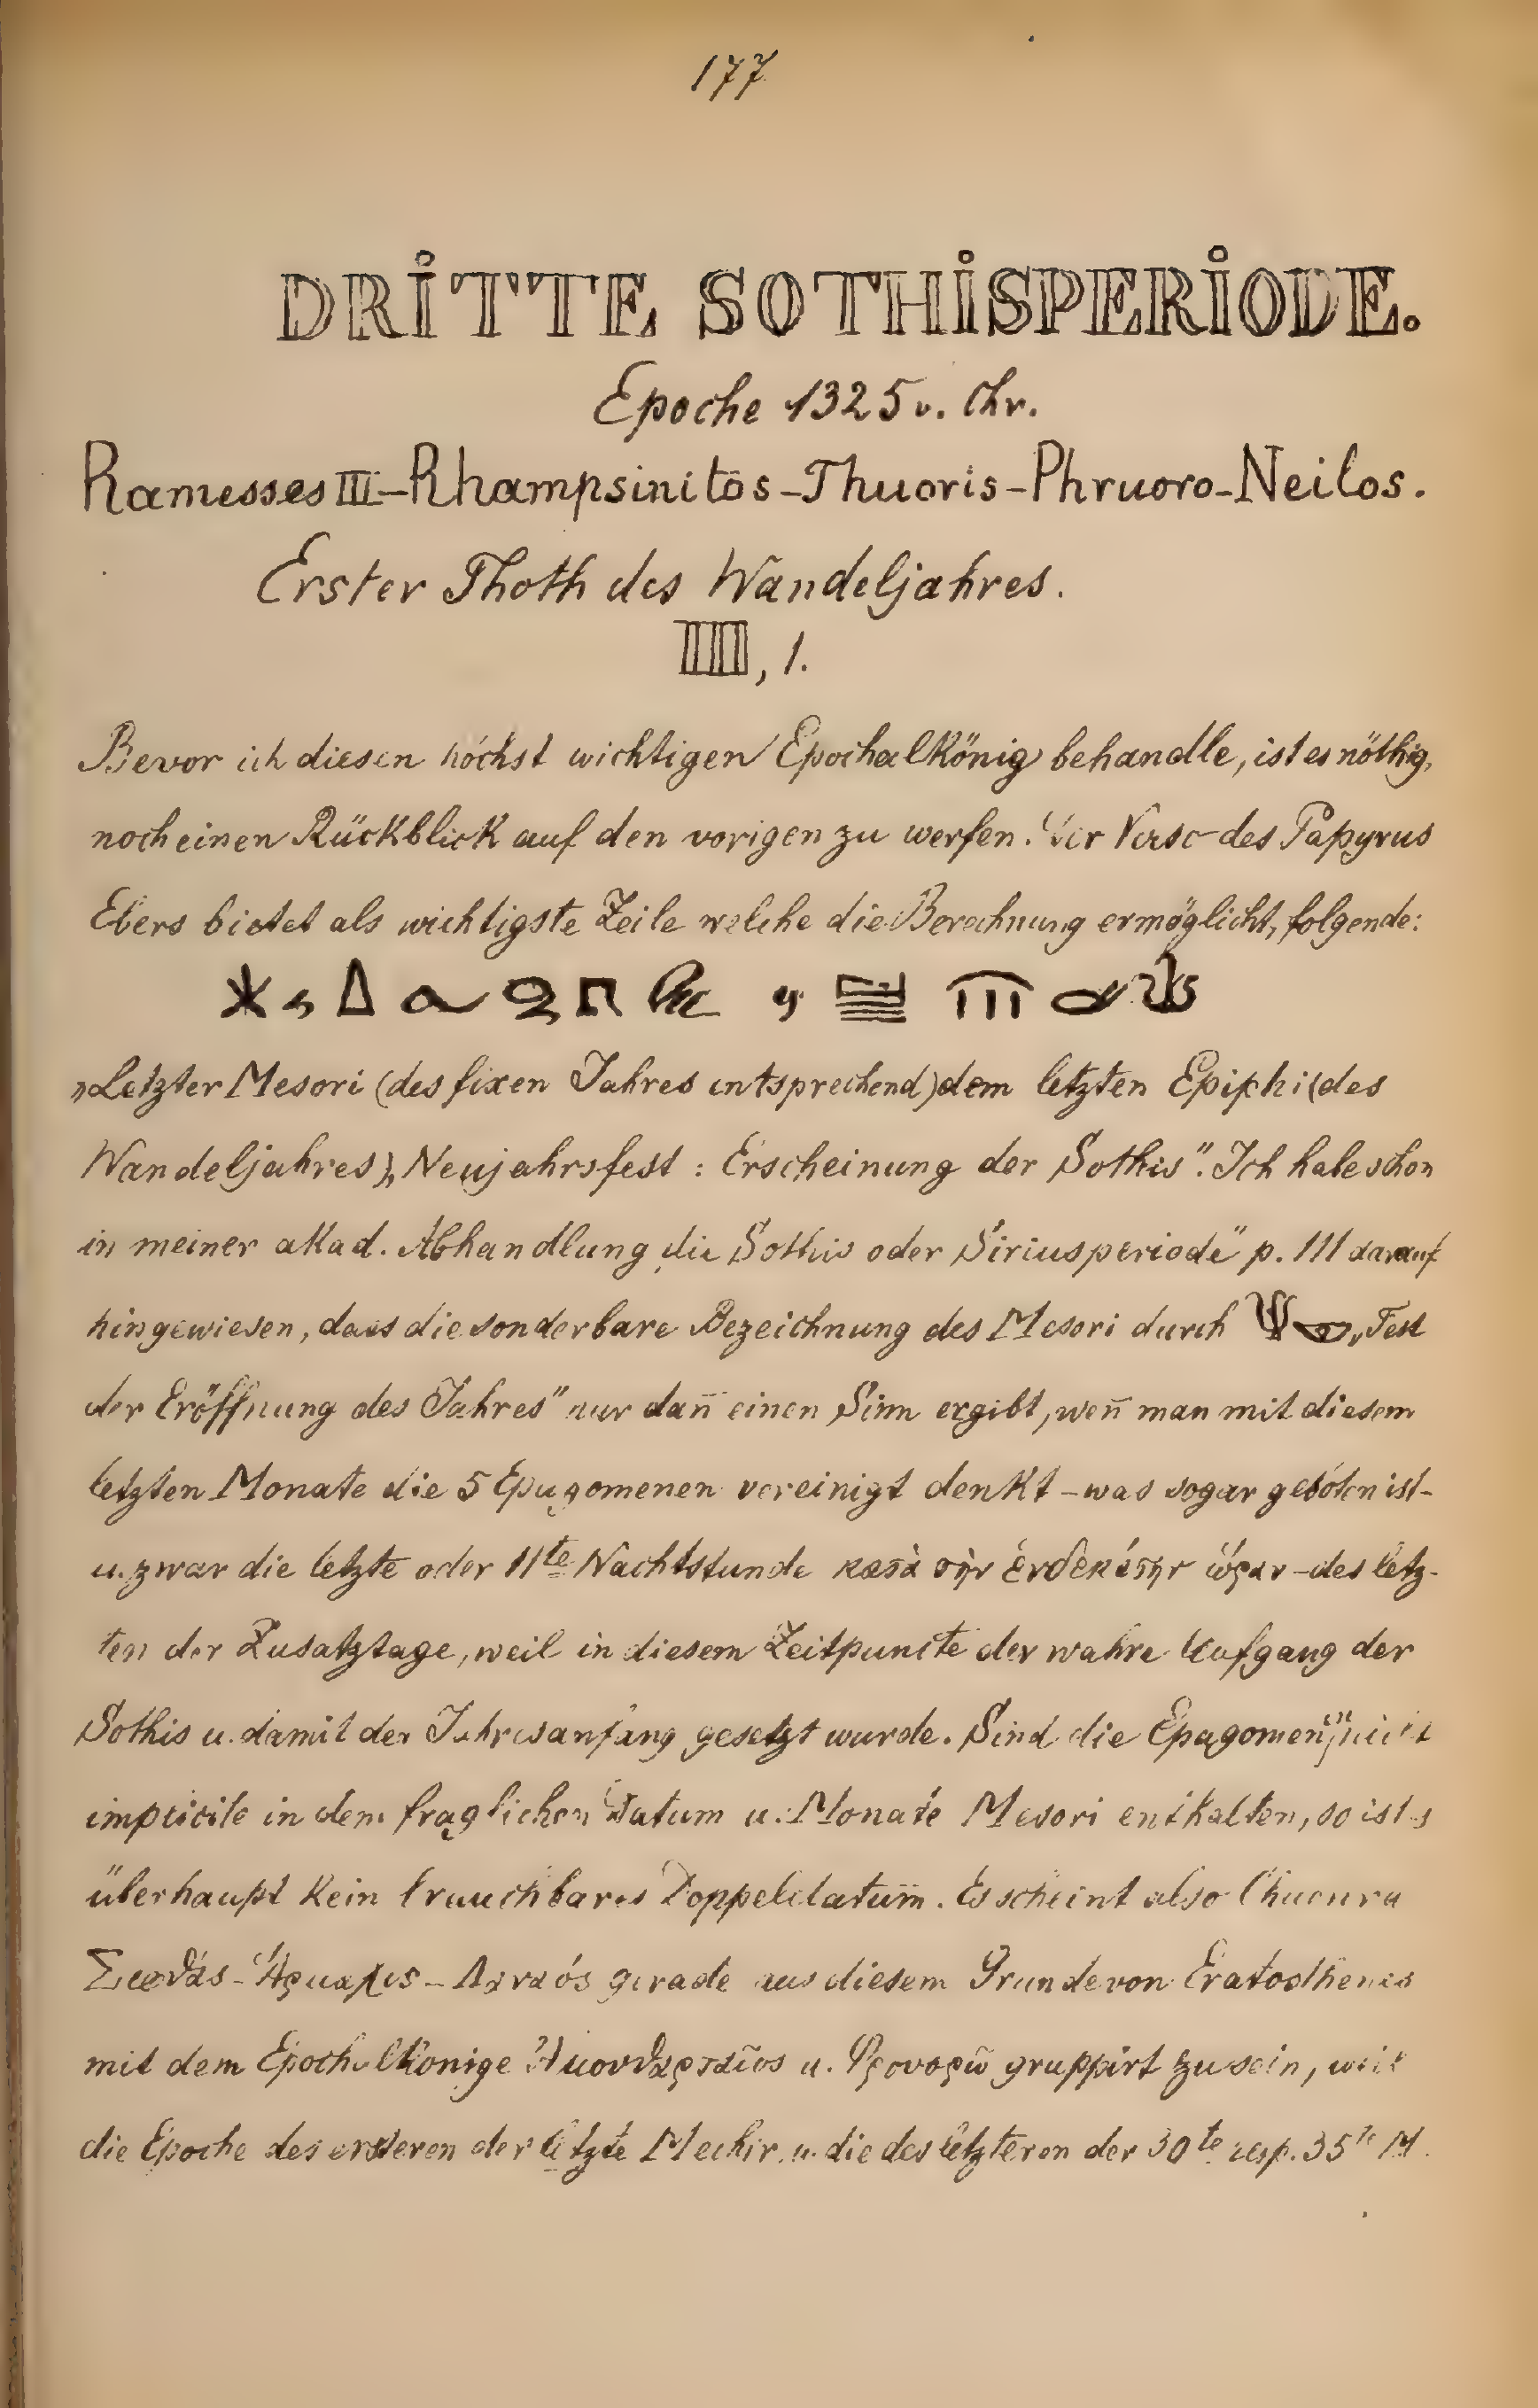 177
DRITTE SOTHISPERIODE.
Epoche 1325 v. Chr.
Ramesses III–Rhampsinitos–Thuoris–Phruoro–Neilos.
Erster Thoth des Wandeljahres.
IIII, 1.
Bevor ich diesen höchst wichtigen Epochalkönig behandle, ist es nöthig,
noch einen Rückblick auf den vorigen zu werfen. Der Verso des Papyrus
Ebers bietet als wichtigste Zeile welche die Berechnung ermöglicht, folgende:
„Letzter Mesori (des fixen Jahres entsprechend) dem letzten Epiphi (des
Wandeljahres), Neujahrsfest : Erscheinung der Sothis". Ich habe schon
in meiner akad. Abhandlung „die Sothis oder Siriusperiode" p. 111 darauf
hingewiesen, dass die sonderbare Bezeichnung des Mesori durch „Fest
der Eröffnung des Jahres" nur dan̄ einen Sinn ergibt, wen̄ man mit diesem
letzten Monate die 5 Epagomenen vereinigt denkt – was sogar geboten ist –
u. zwar die letzte oder 11te Nachtstunde κατὰ τὴν ἑνδεκάτην ὥραν – des letz-
ten der Zusatztage, weil in diesem Zeitpuncte der wahre Aufgang der
Sothis u. damit der Jahresanfang gesetzt wurde. Sind die Epagomenen nicht
implicite in dem fraglichen Datum u. Monate Mesori enthalten, so ists
überhaupt kein brauchbares Doppeldatum. Es scheint also
– Ἅρμαχις – Δαναός gerade aus diesem Grunde von Eratosthenes
mit dem Epochalkönige Ἀμουθαρταῖος u. Φρουορῶ gruppirt zu sein, weil
die Epoche des ersteren der letzte Mechir u. die des letzteren der 30te resp. 35te M.